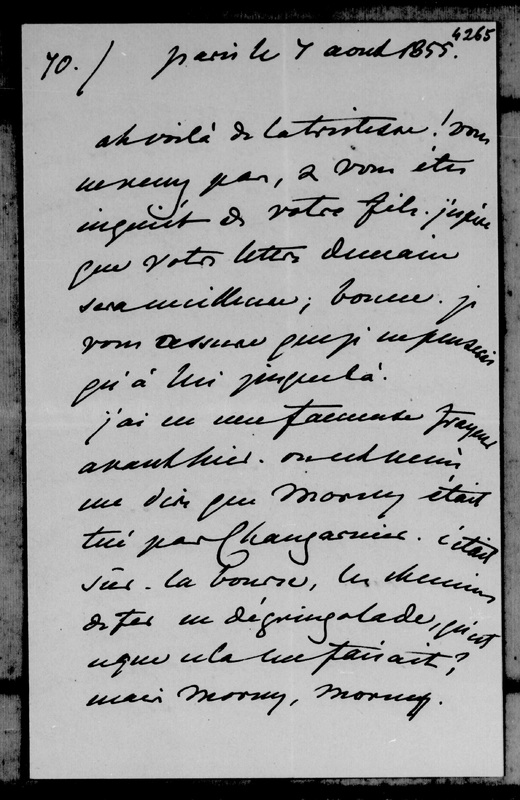 4265
70. / paris le 7 aout 1855.
ah voilà de la tristesse ! vous
ne venez pas, & vous êtes
inquiet de votre fils. j'espère
que votre lettre demain
sera meilleure ; bonne. je
vous assure que je ne penserai
qu'à lui jusque là.
j'ai eu une fameuse frayeur
avant hier. on est venu
me dire que Morny était
tué par Changarnier. c'était
sûr. la bourse, les chemins
de fer en dégringolade, qu'est
ce que cela me faisait ?
mais Morny, Morny.